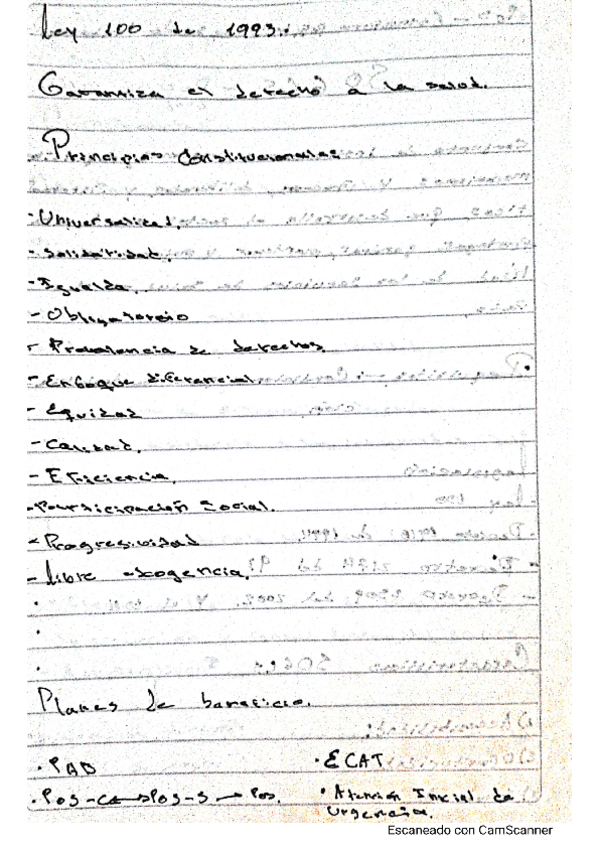 Ley 100 de 1993:
Garantiza el derecho a la salud.
Principios Constitucionales
- Universalidad.
- Solidaridad.
- Igualda.
- Obligatoreio
- Prevalencia de derechos
- Enfoque diferencial
- Equidad
- Calidad.
- Eficiencia.
- Participación Social.
- Progresividad
- Libre escogencia.
Planes de beneficio.
· PAB
· ECAT
· POS-C → POS-S → Pos.
· Atención Inicial de
Urgencia.
Escaneado con CamScanner